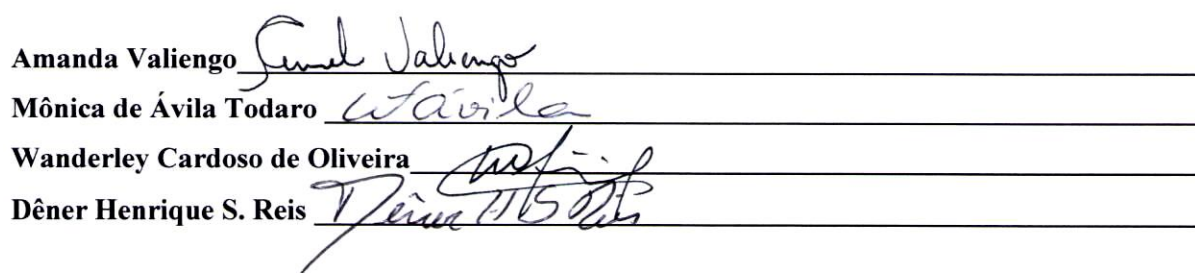 Amanda Valiengo Valiengo
Mônica de Ávila Todaro Ávila
Wanderley Cardoso de Oliveira
Dêner Henrique S. Reis Dêner H S Reis